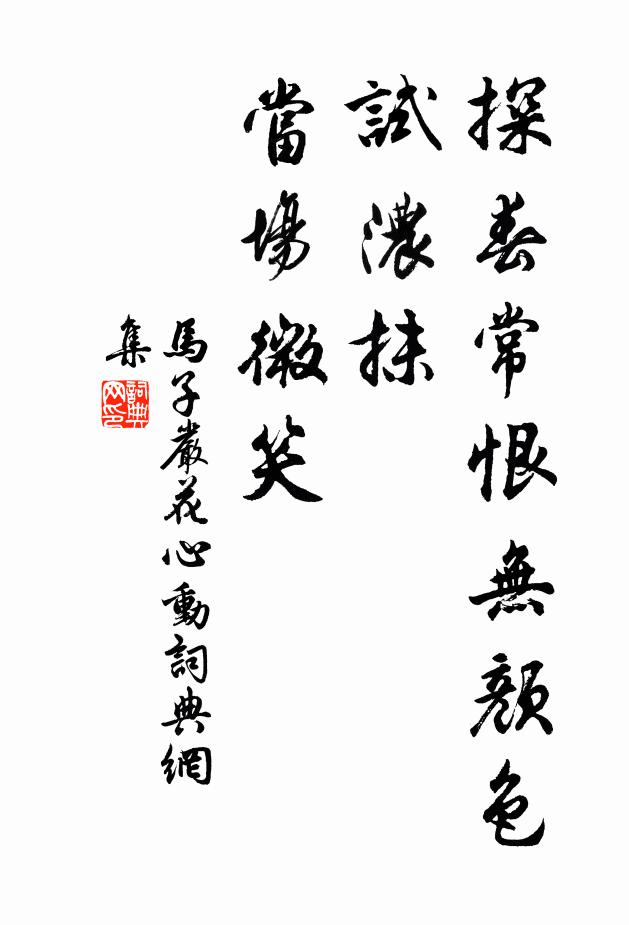 探春常恨無顏色
試濃抹
當場微笑
馬子嚴花心動詞典網
集
詞典
网印